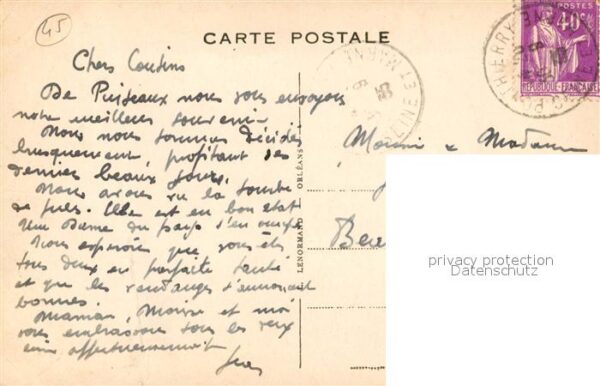 45
CARTE POSTALE
POSTES
40c
REPUBLIQUE FRANÇAISE
Chers Cousins
De Puiseaux nous vous envoyons
notre meilleur souvenir
Nous nous sommes décidés
brusquement, profitant des
derniers beaux jours.
Nous avons vu la tombe
de Jules. Elle est en bon état
Une Dame du pays s'en occupe
Nous espérons que vous êtes
tous deux en parfaite santé
et que les vendanges s'annoncent
bonnes.
Maman, et moi
vous embrassons tous les deux
affectueusement
LENORMAND ORLÉANS
ET MARNE
SEINE
PONTHIERRY
Monsieur & Madame
privacy protection
Datenschutz